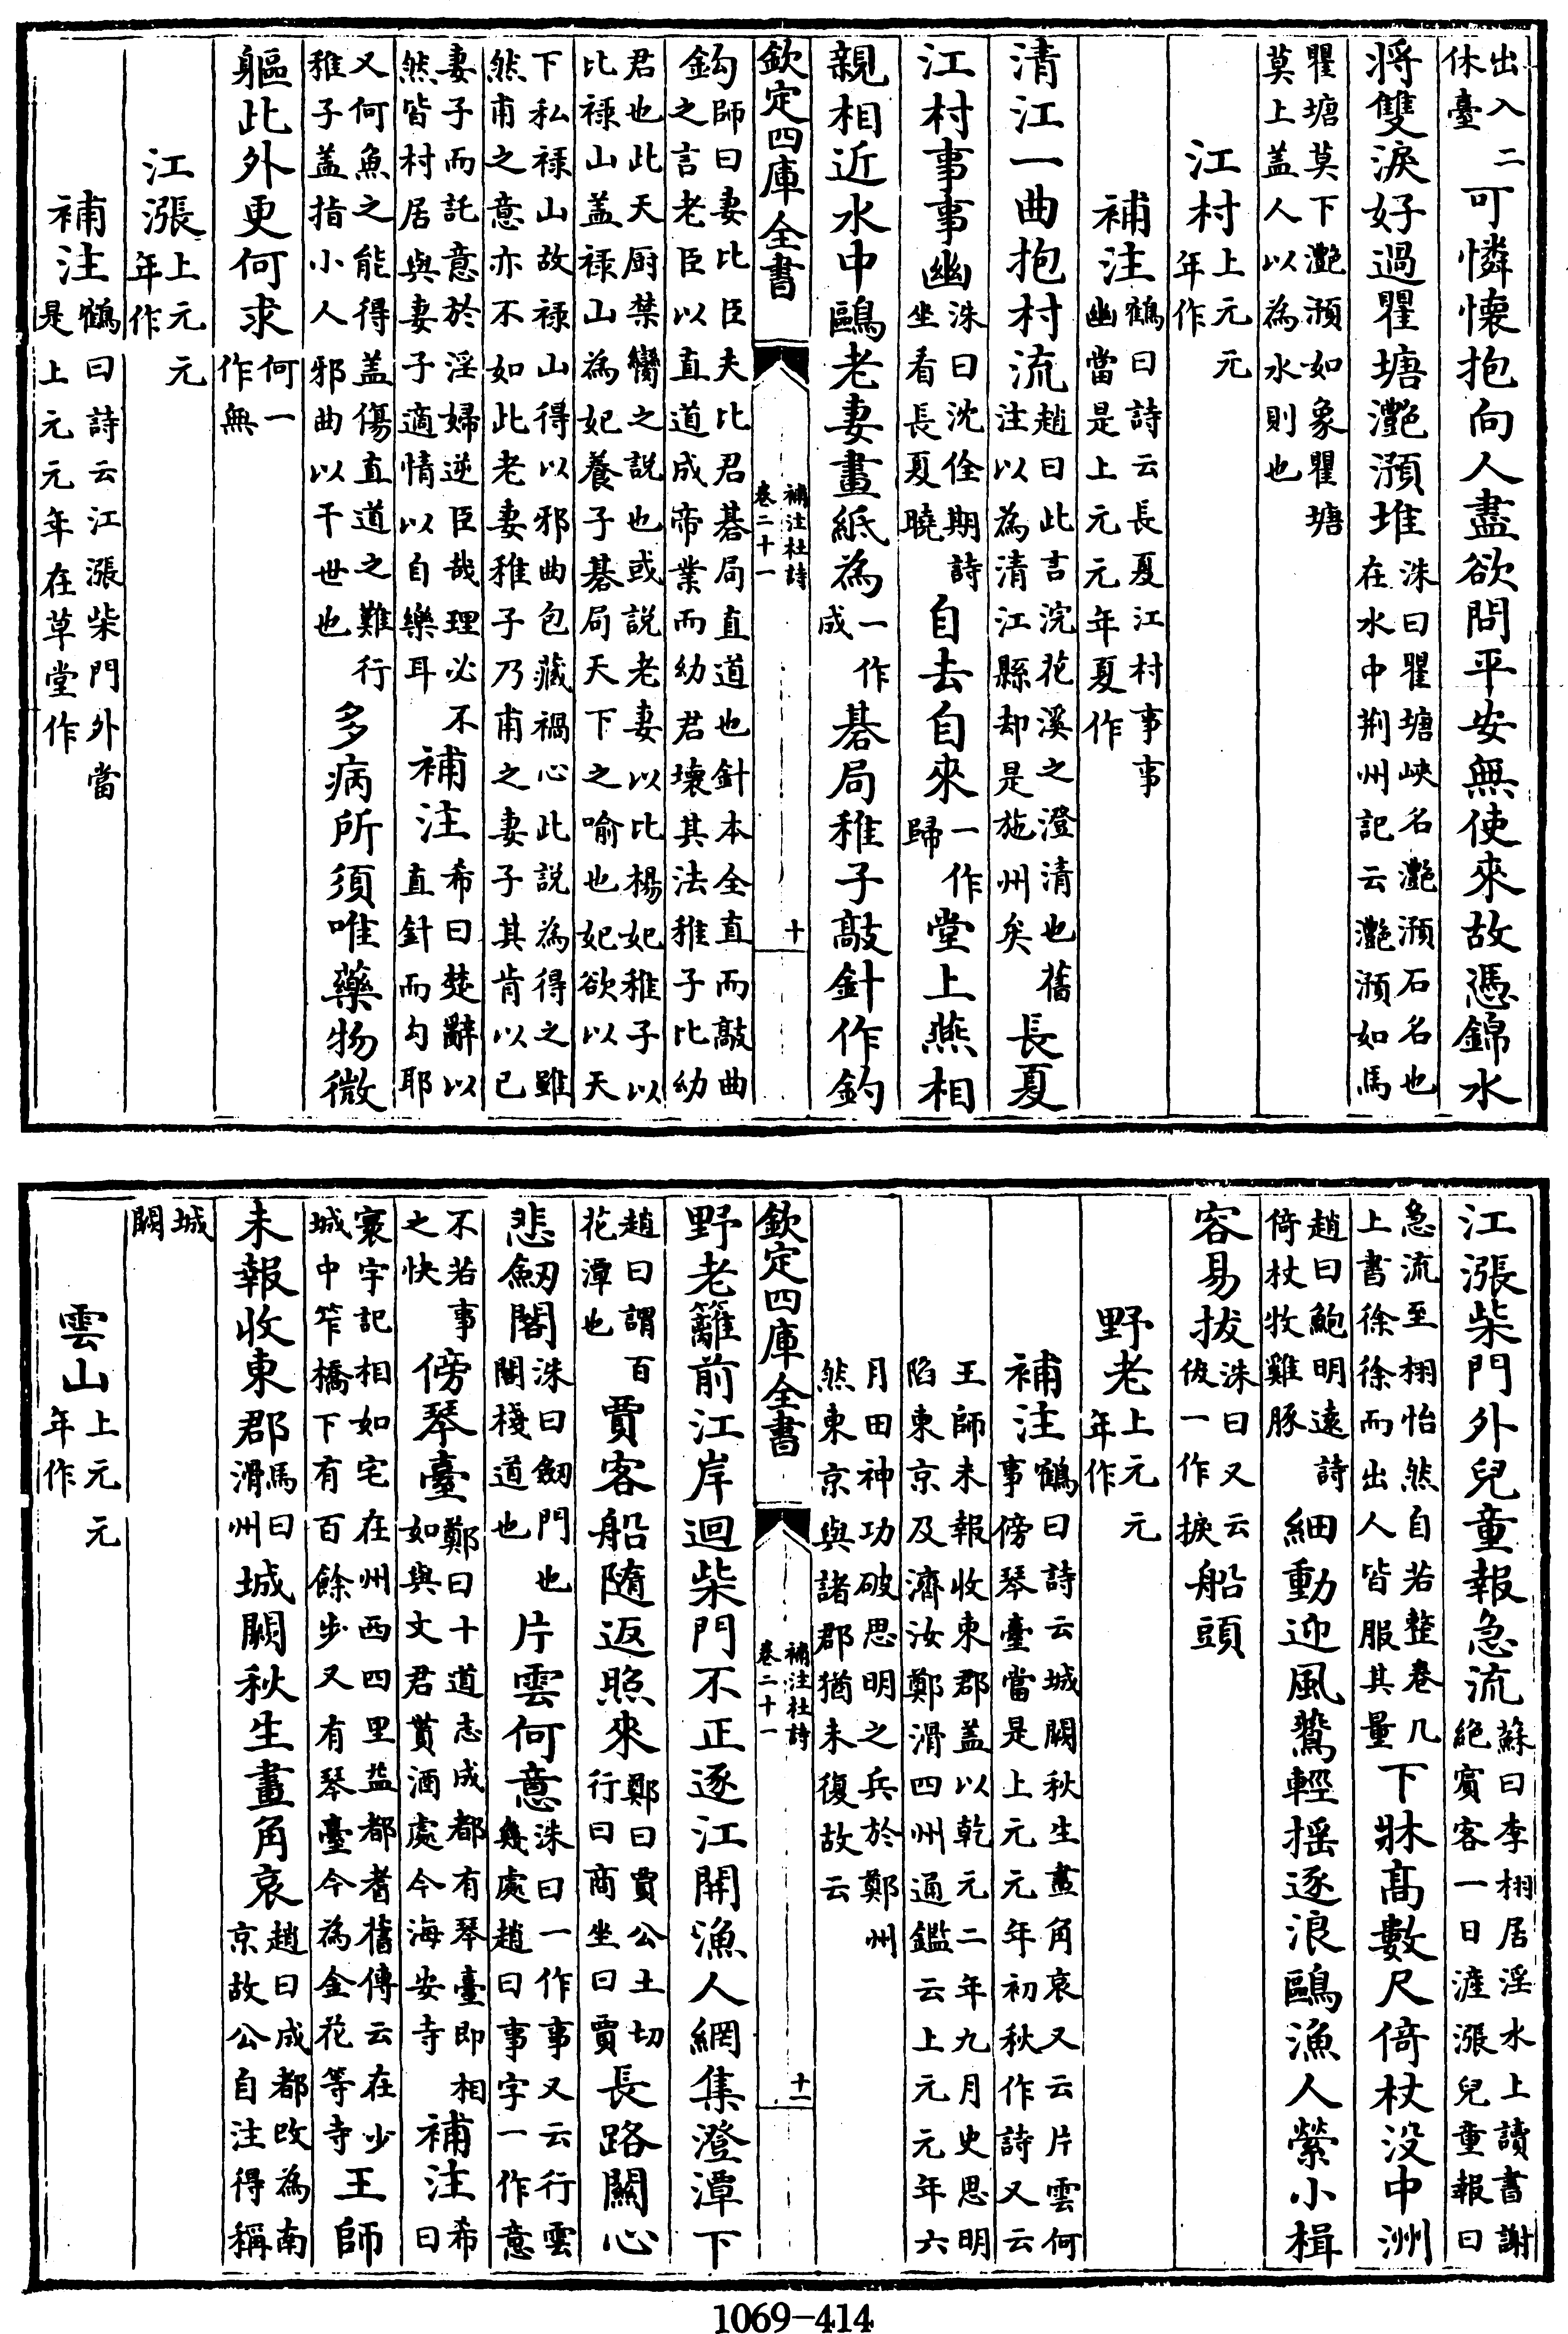 出入二休臺可憐懷抱向人盡欲問平安無使來故憑錦水
將雙淚好過瞿塘灩澦堆洙曰瞿塘峽名灩澦石名也在水中荆州記云灩澦如馬
瞿塘莫下灩澦如象瞿塘莫上盖人以為水則也
江村上元元年作
補注鶴曰詩云長夏江村事事幽當是上元元年夏作
清江一曲抱村流趙曰此言浣花溪之澄清也舊注以為清江縣却是施州矣長夏
江村事事幽洙曰沈佺期詩坐看長夏曉自去自來一作歸堂上燕相
親相近水中鷗老妻畫紙為一作成碁局稚子敲針作釣
欽定四庫全書 補注杜詩卷二十一 十
鈎師曰妻比臣夫比君碁局直道也針本全直而敲曲之言老臣以直道成帝業而幼君壞其法稚子比幼
君也此天厨禁臠之說也或說老妻以比楊妃稚子以比祿山盖祿山為妃養子碁局天下之喻也妃欲以天
下私祿山故祿山得以邪曲包藏禍心此說為得之雖然甫之意亦不如此老妻稚子乃甫之妻子其肯以己
妻子而託意於淫婦逆臣哉理必不然皆村居與妻子適情以自樂耳補注希曰楚辭以直針而勾耶
又何魚之能得盖傷直道之難行稚子盖指小人邪曲以干世也多病所須唯藥物微
軀此外更何求何一作無
江漲上元元年作
補注鶴曰詩云江漲柴門外當是上元元年在草堂作
江漲柴門外兒童報急流蘇曰李栩居淫水上讀書謝絶賓客一日漄漲兒童報曰
急流至栩怡然自若整卷几上書徐徐而出人皆服其量下牀髙數尺倚杖没中洲
趙曰鮑明遠詩倚杖牧雞豚細動迎風鷰輕摇逐浪鷗漁人縈小楫
容易拔洙曰又云佊一作捩船頭
野老上元元年作
補注鶴曰詩云城闕秋生畫角哀又云片雲何事傍琴臺當是上元元年初秋作詩又云
王師未報收東郡盖以乾元二年九月史思明陷東京及濟汝鄭滑四州通鑑云上元元年六
月田神功破思明之兵於鄭州然東京與諸郡猶未復故云
欽定四庫全書 補注杜詩卷二十一 十一
野老籬前江岸迴柴門不正逐江開漁人網集澄潭下
趙曰謂百花潭也賈客船隨返照來鄭曰賈公土切行曰商坐曰賈長路關心
悲劒閣洙曰劒門也閣棧道也片雲何意洙曰一作事又云行雲幾處趙曰事字一作意
不若事之快傍琴臺鄭曰十道志成都有琴臺即相如與文君貰酒處今海安寺補注希曰
寰宇記相如宅在州西四里益都耆舊傳云在少城中笮橋下有百餘步又有琴臺今為金花等寺王師
未報收東郡馬曰滑州城闕秋生畫角哀趙曰成都改為南京故公自注得稱
城闕
雲山上元元年作
1069-414